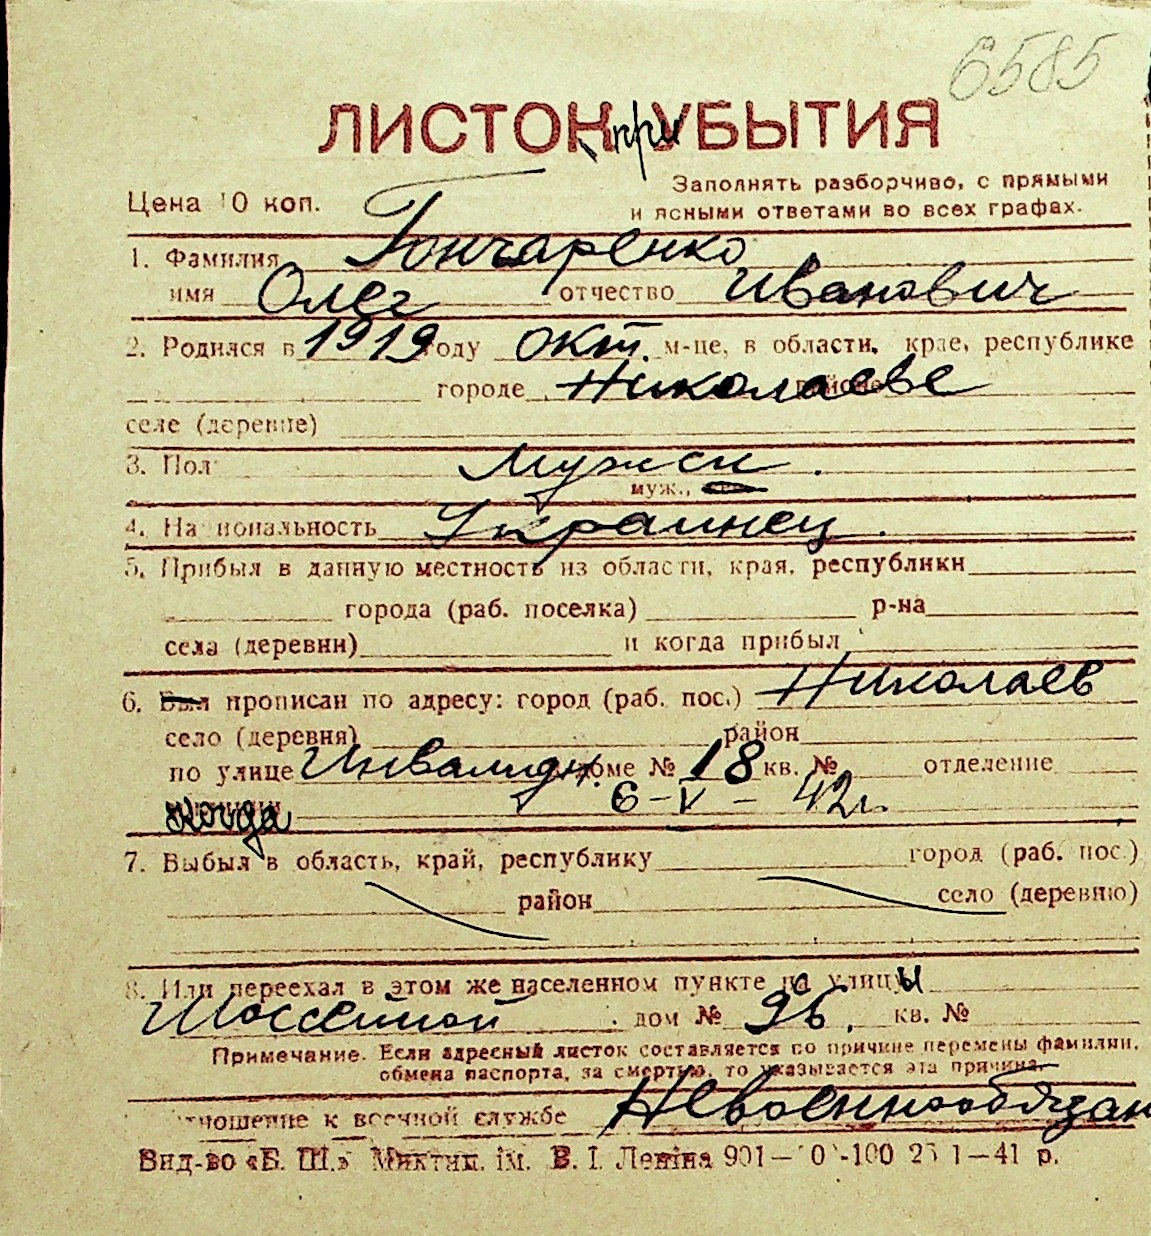 6585
ЛИСТОК при УБЫТИЯ
Цена 10 коп.
Заполнять разборчиво, с прямыми
и ясными ответами во всех графах.
1. Фамилия Гончаренко
имя Олег отчество Иванович
2. Родился в 1919 году окт. м-це, в области, крае, республике
городе Николаеве районе
селе (деревне)
3. Пол Мужск.
муж.,
4. Национальность Украинец.
5. Прибыл в данную местность из области, края, республики
города (раб. поселка) р-на
села (деревни) и когда прибыл
6. Был прописан по адресу: город (раб. пос.) Николаев
село (деревня) район
по улице Инвалидн. доме № 18 кв. № отделение
когда 6-V-42г.
7. Выбыл в область, край, республику город (раб. пос.)
район село (деревню)
8. Или переехал в этом же населенном пункте с улицы
Шоссейной дом № 96. кв. №
Примечание. Если адресный листок составляется по причине перемены фамилии,
обмена паспорта, за смертью, то указывается эта причина.
тношение к военной службе Невоеннообязан
Вид-во «Б. Ш.» Миктип. ім. В. І. Леніна 901— 0 -100 25 1—41 р.